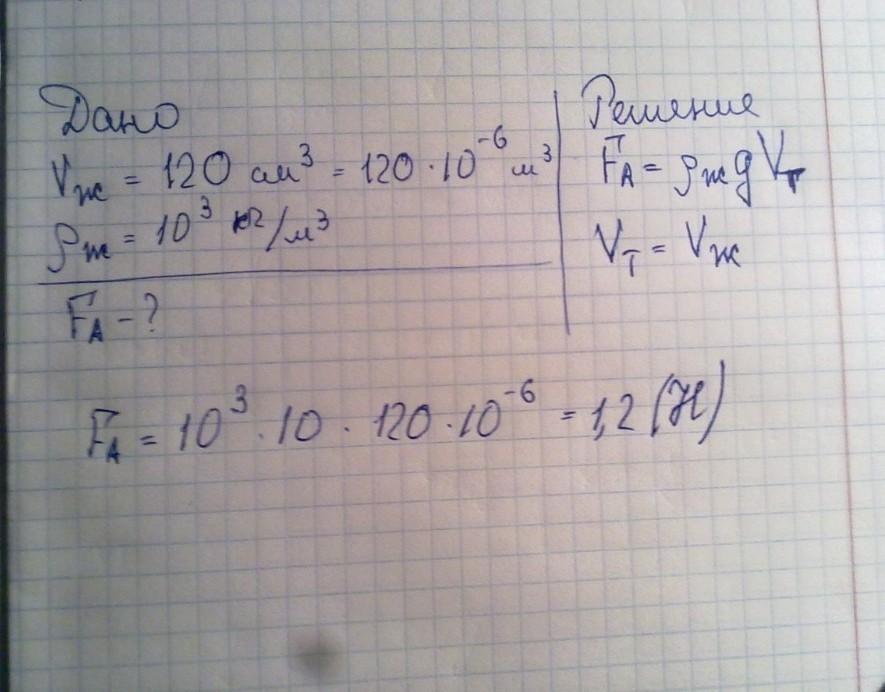 Дано
Vж = 120 см³ = 120 · 10⁻⁶ м³
ρж = 10³ кг/м³
FА - ?
Решение
FА = ρж g Vт
Vт = Vж
FА = 10³ · 10 · 120 · 10⁻⁶ = 1,2 (Н)